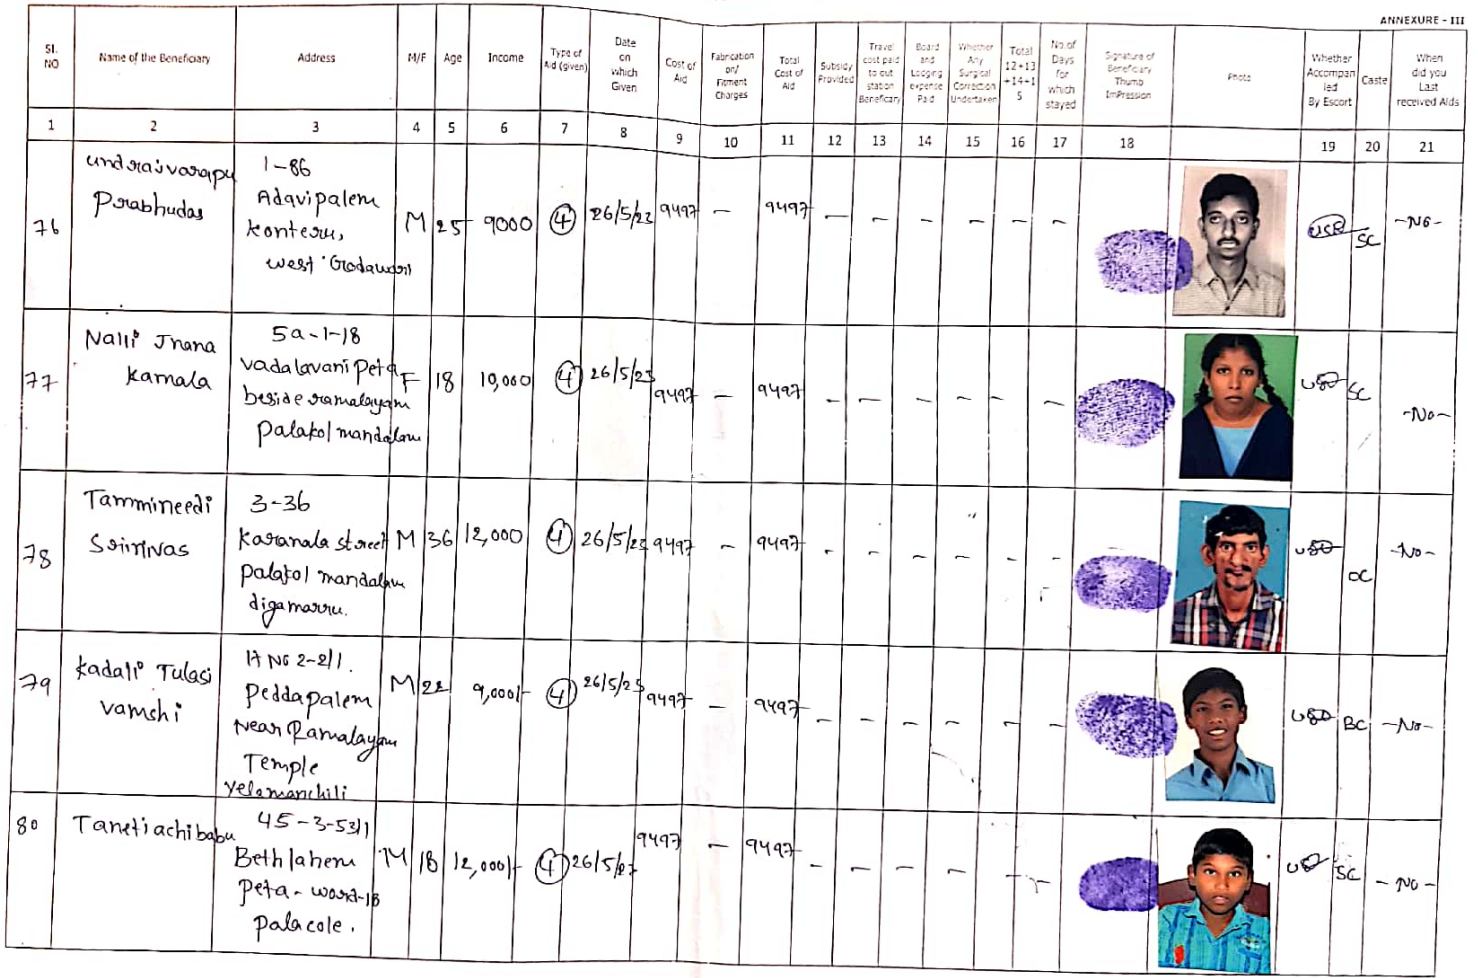 ANNEXURE - III
Sl. NO Name of the Beneficiary Address M/F Age Income Type of Aid (given) Date on which Given Cost of Aid Fabrication on/ Fitment Charges Total Cost of Aid Subsidy Provided Travel cost paid to out station Beneficiary Board and Lodging expense Paid Whether Any Surgical Correction Undertaken Total 12+13+14+15 No. of Days for which stayed Signature of Beneficiary Thumb ImPression Photo Whether Accompanied By Escort Caste When did you Last received Aids
1 2 3 4 5 6 7 8 9 10 11 12 13 14 15 16 17 18 19 20 21
76 undrasvarapu Prabhudas 1-86 Adavipalem Konteru, west Godavari M 25 9000 4 26/5/23 9497 – 9497 – – – – – – SC -No-
77 Nalli Jnana Kamala 5a-1-18 vadalavani Peta beside ramalayam Palakol mandalam F 18 10,000 4 26/5/23 9497 – 9497 – – – – – – SC -No-
78 Tammineedi Srinivas 3-36 Karanala street palakol mandalam digamarru. M 36 12,000 4 26/5/23 9497 – 9497 - - - - - - OC -No-
79 Kadali Tulasi vamshi H No 2-2/1. Peddapalem Near Ramalayam Temple Yelamanchili M 22 9,000/- 4 26/5/23 9497 – 9497 – – – – – – BC -No-
80 Taneti achibabu 45-3-53/1 Bethlahem Peta - word-1B Palacole. M 18 12,000/- 4 26/5/23 9497 – 9497 – – – – – – SC - No -